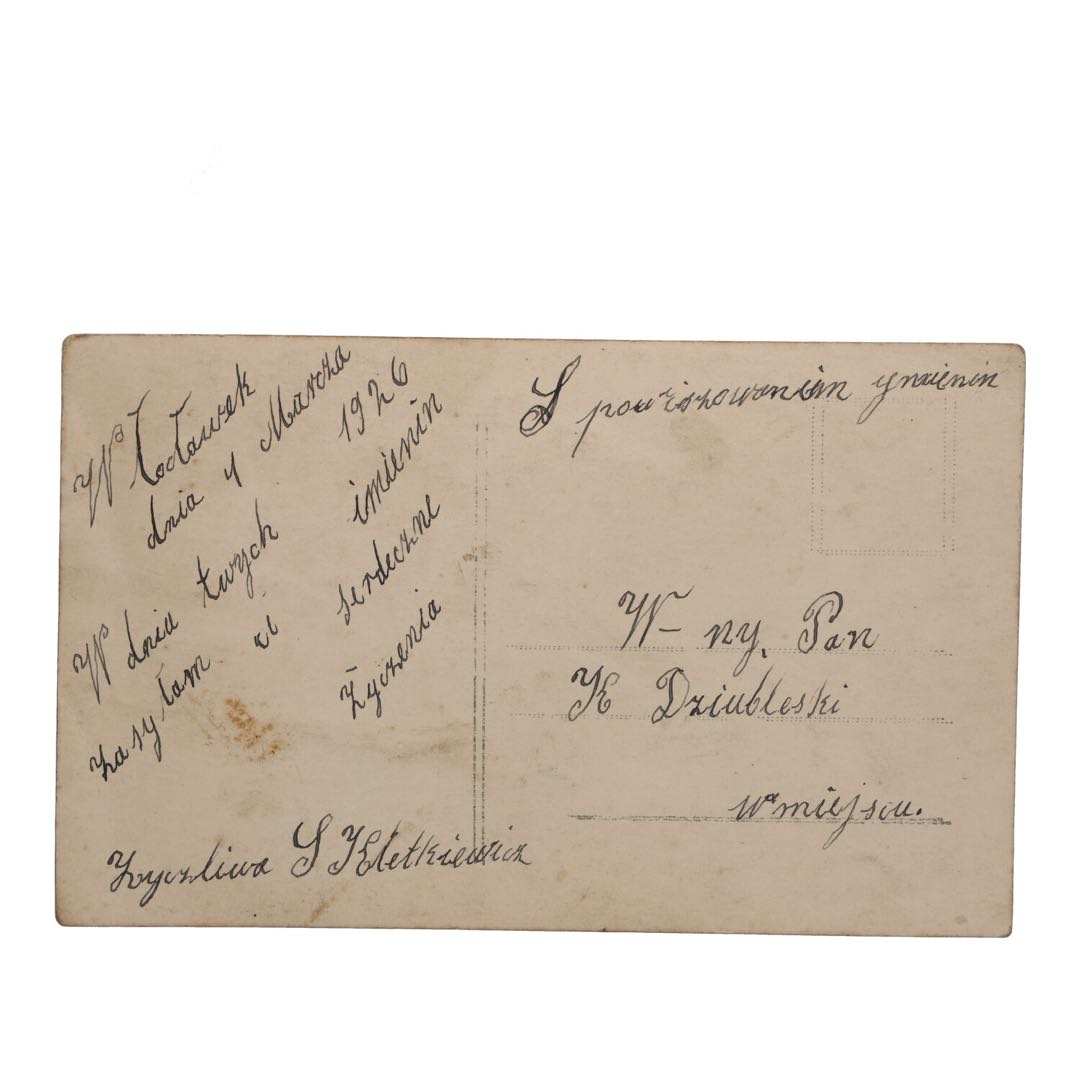 Włocławek
dnia 4 Marcza
1926
W dnia twych imienin
zasyłam ci serdeczne
życzenia
Życzliwa S Kletkiewicz
S powiszowaniem ymienin
W-ny. Pan
K Dziubleski
w miejscu.